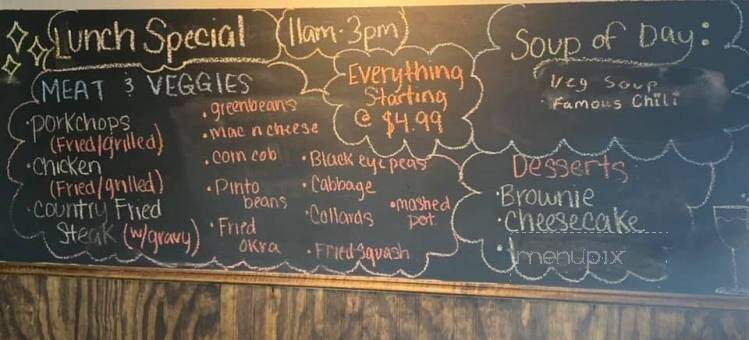 Lunch Special (11am-3pm)
MEAT & VEGGIES
• porkchops
(Fried/grilled)
• chicken
(Fried/grilled)
• country Fried
Steak (w/gravy)
• greenbeans
• mac n cheese
• corn cob
• Pinto
beans
• Fried
okra
• Black eye peas
• Cabbage
• Collards
• Fried Squash
• mashed
pot.
Everything
Starting
@ $4.99
Soup of Day:
Veg Soup
• Famous Chili
Desserts
• Brownie
• cheesecake
•
menupix